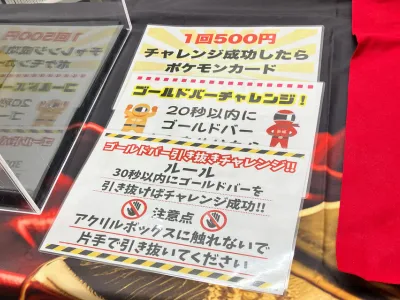 1回500円
チャレンジ成功したら
ポケモンカード
ゴールドバーチャレンジ!
20秒以内に
ゴールドバー
ゴールドバー引き抜きチャレンジ!!
ルール
30秒以内にゴールドバーを
引き抜けばチャレンジ成功!!
注意点
アクリルボックスに触れないで
片手で引き抜いてください